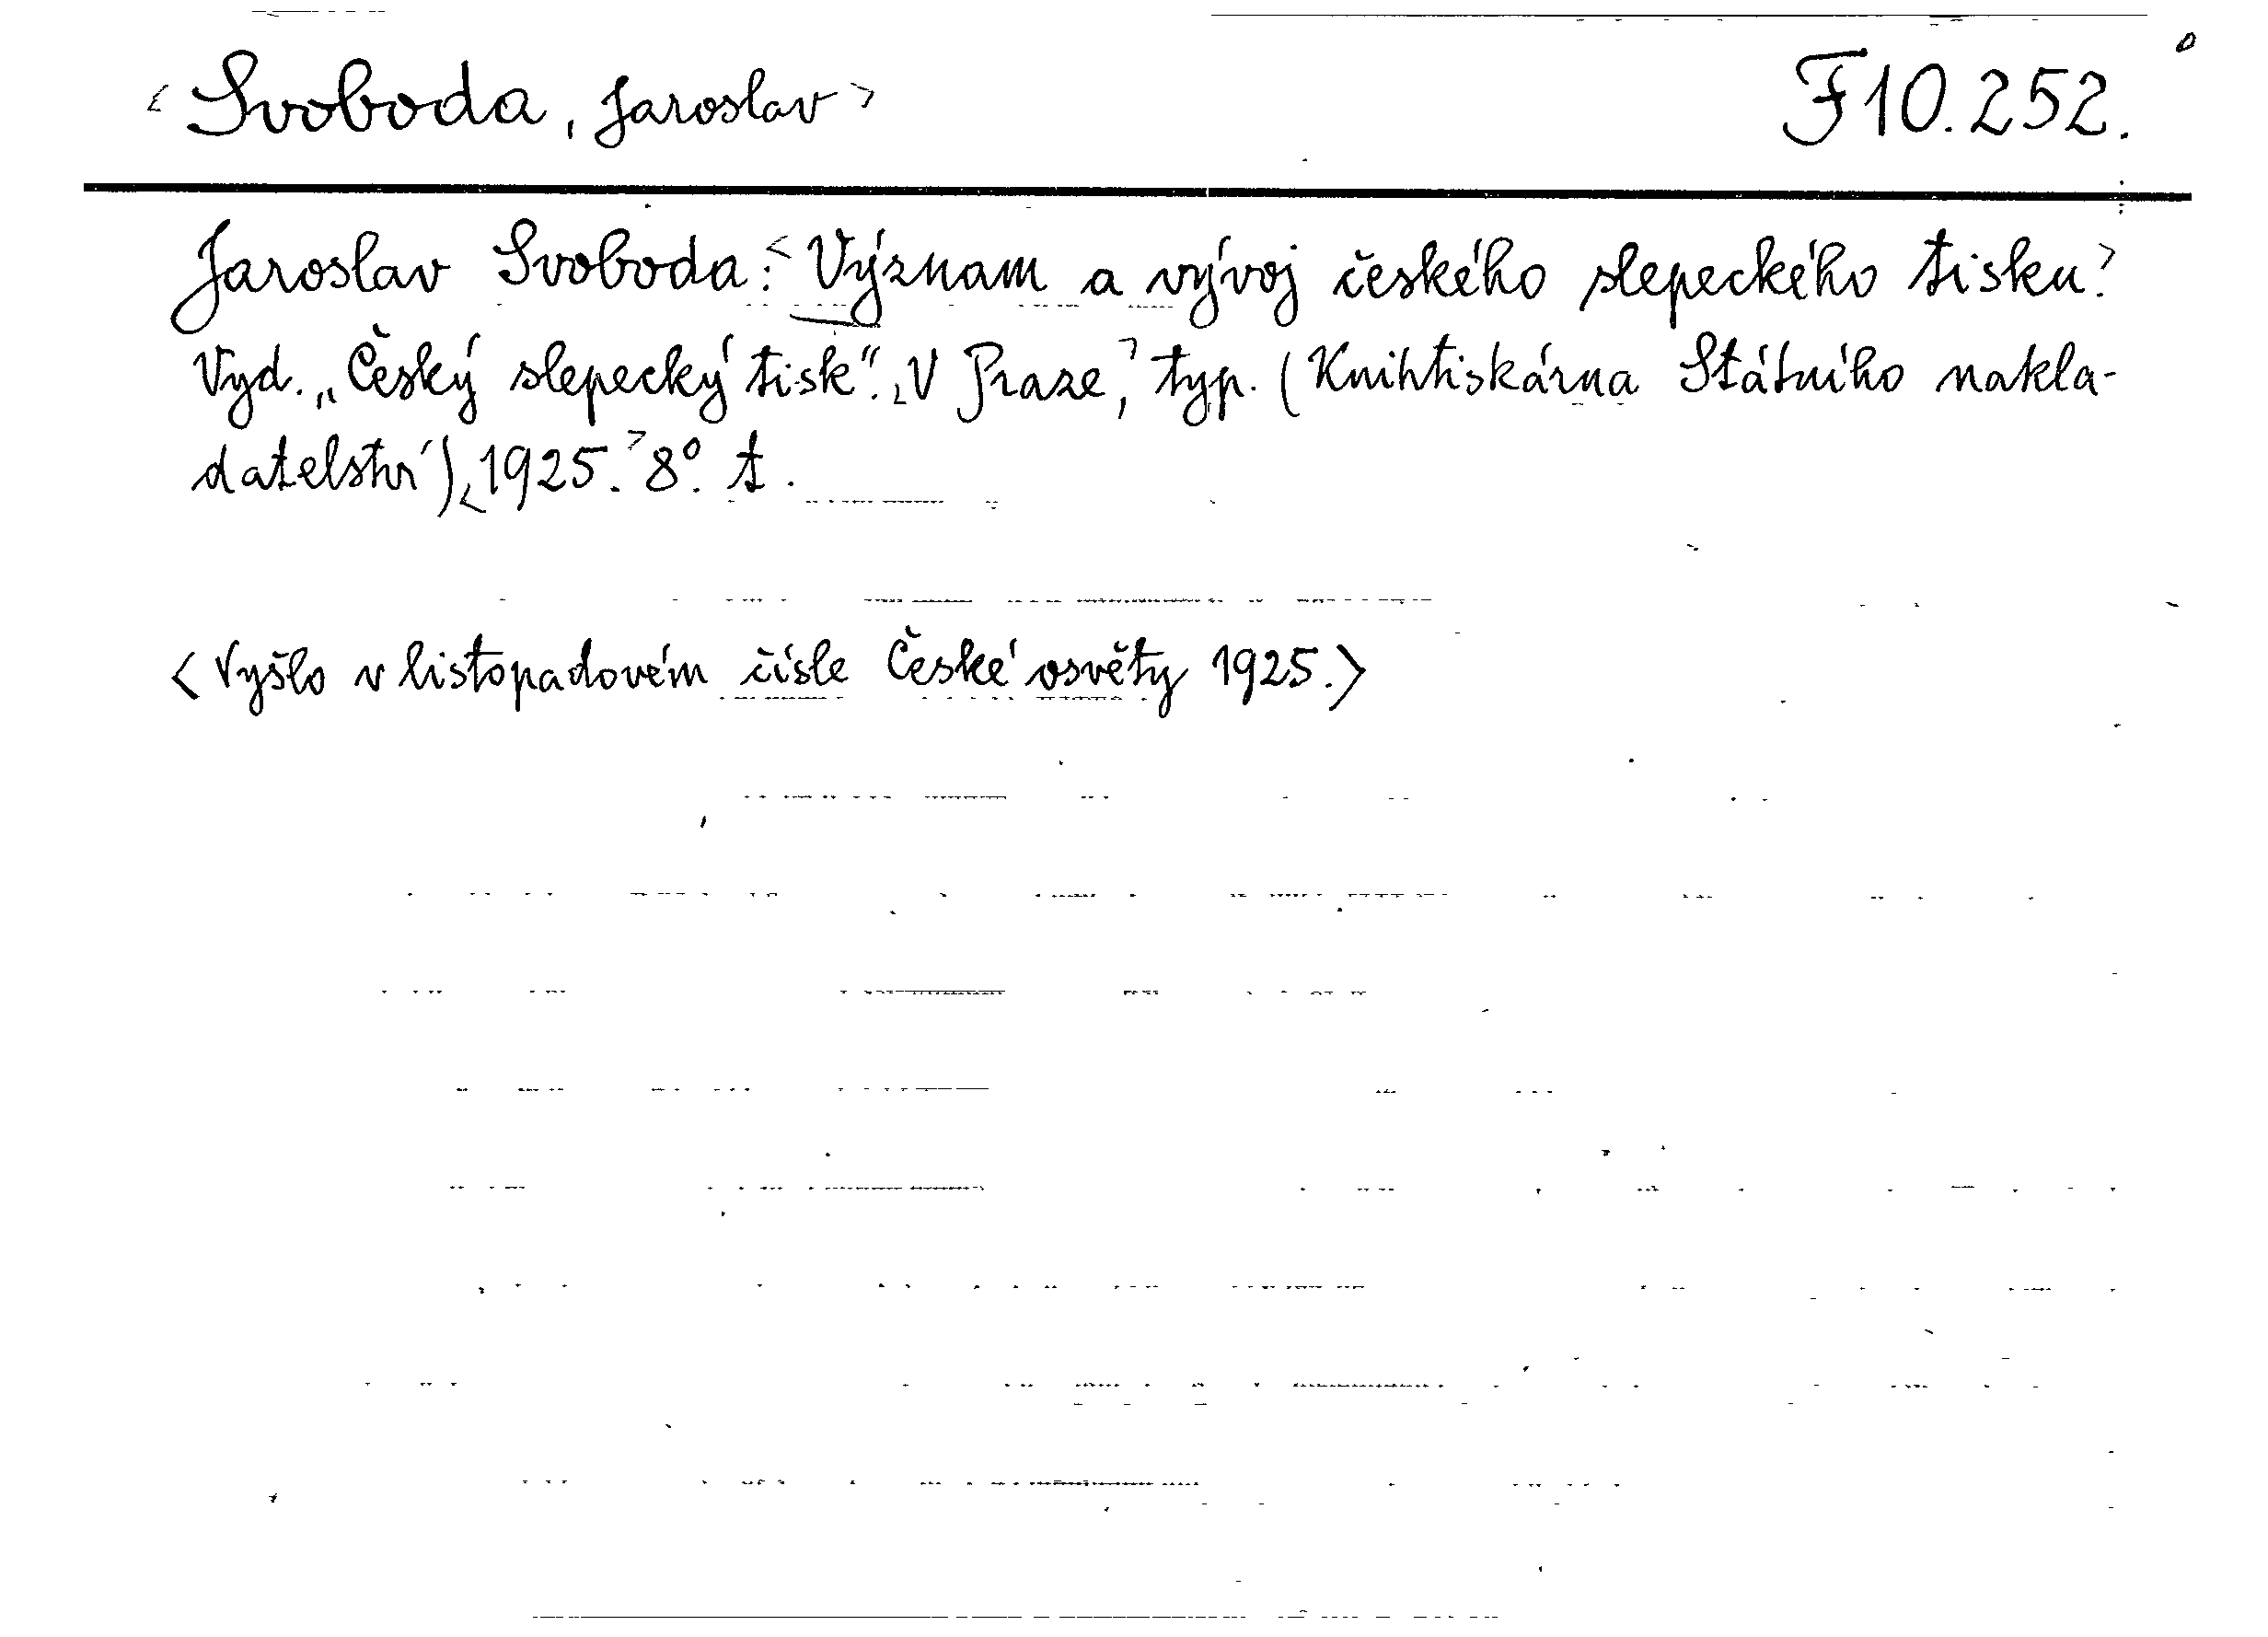 <Svoboda, Jaroslav> F10.252.
Jaroslav Svoboda: <Význam a vývoj českého slepeckého tisku.>
Vyd. „Český slepecký tisk“. <V Praze,> typ. (Knihtiskárna Státního nakla-
datelství), <1925.> 8°. t.
<Vyšlo v listopadovém čísle České osvěty 1925.>